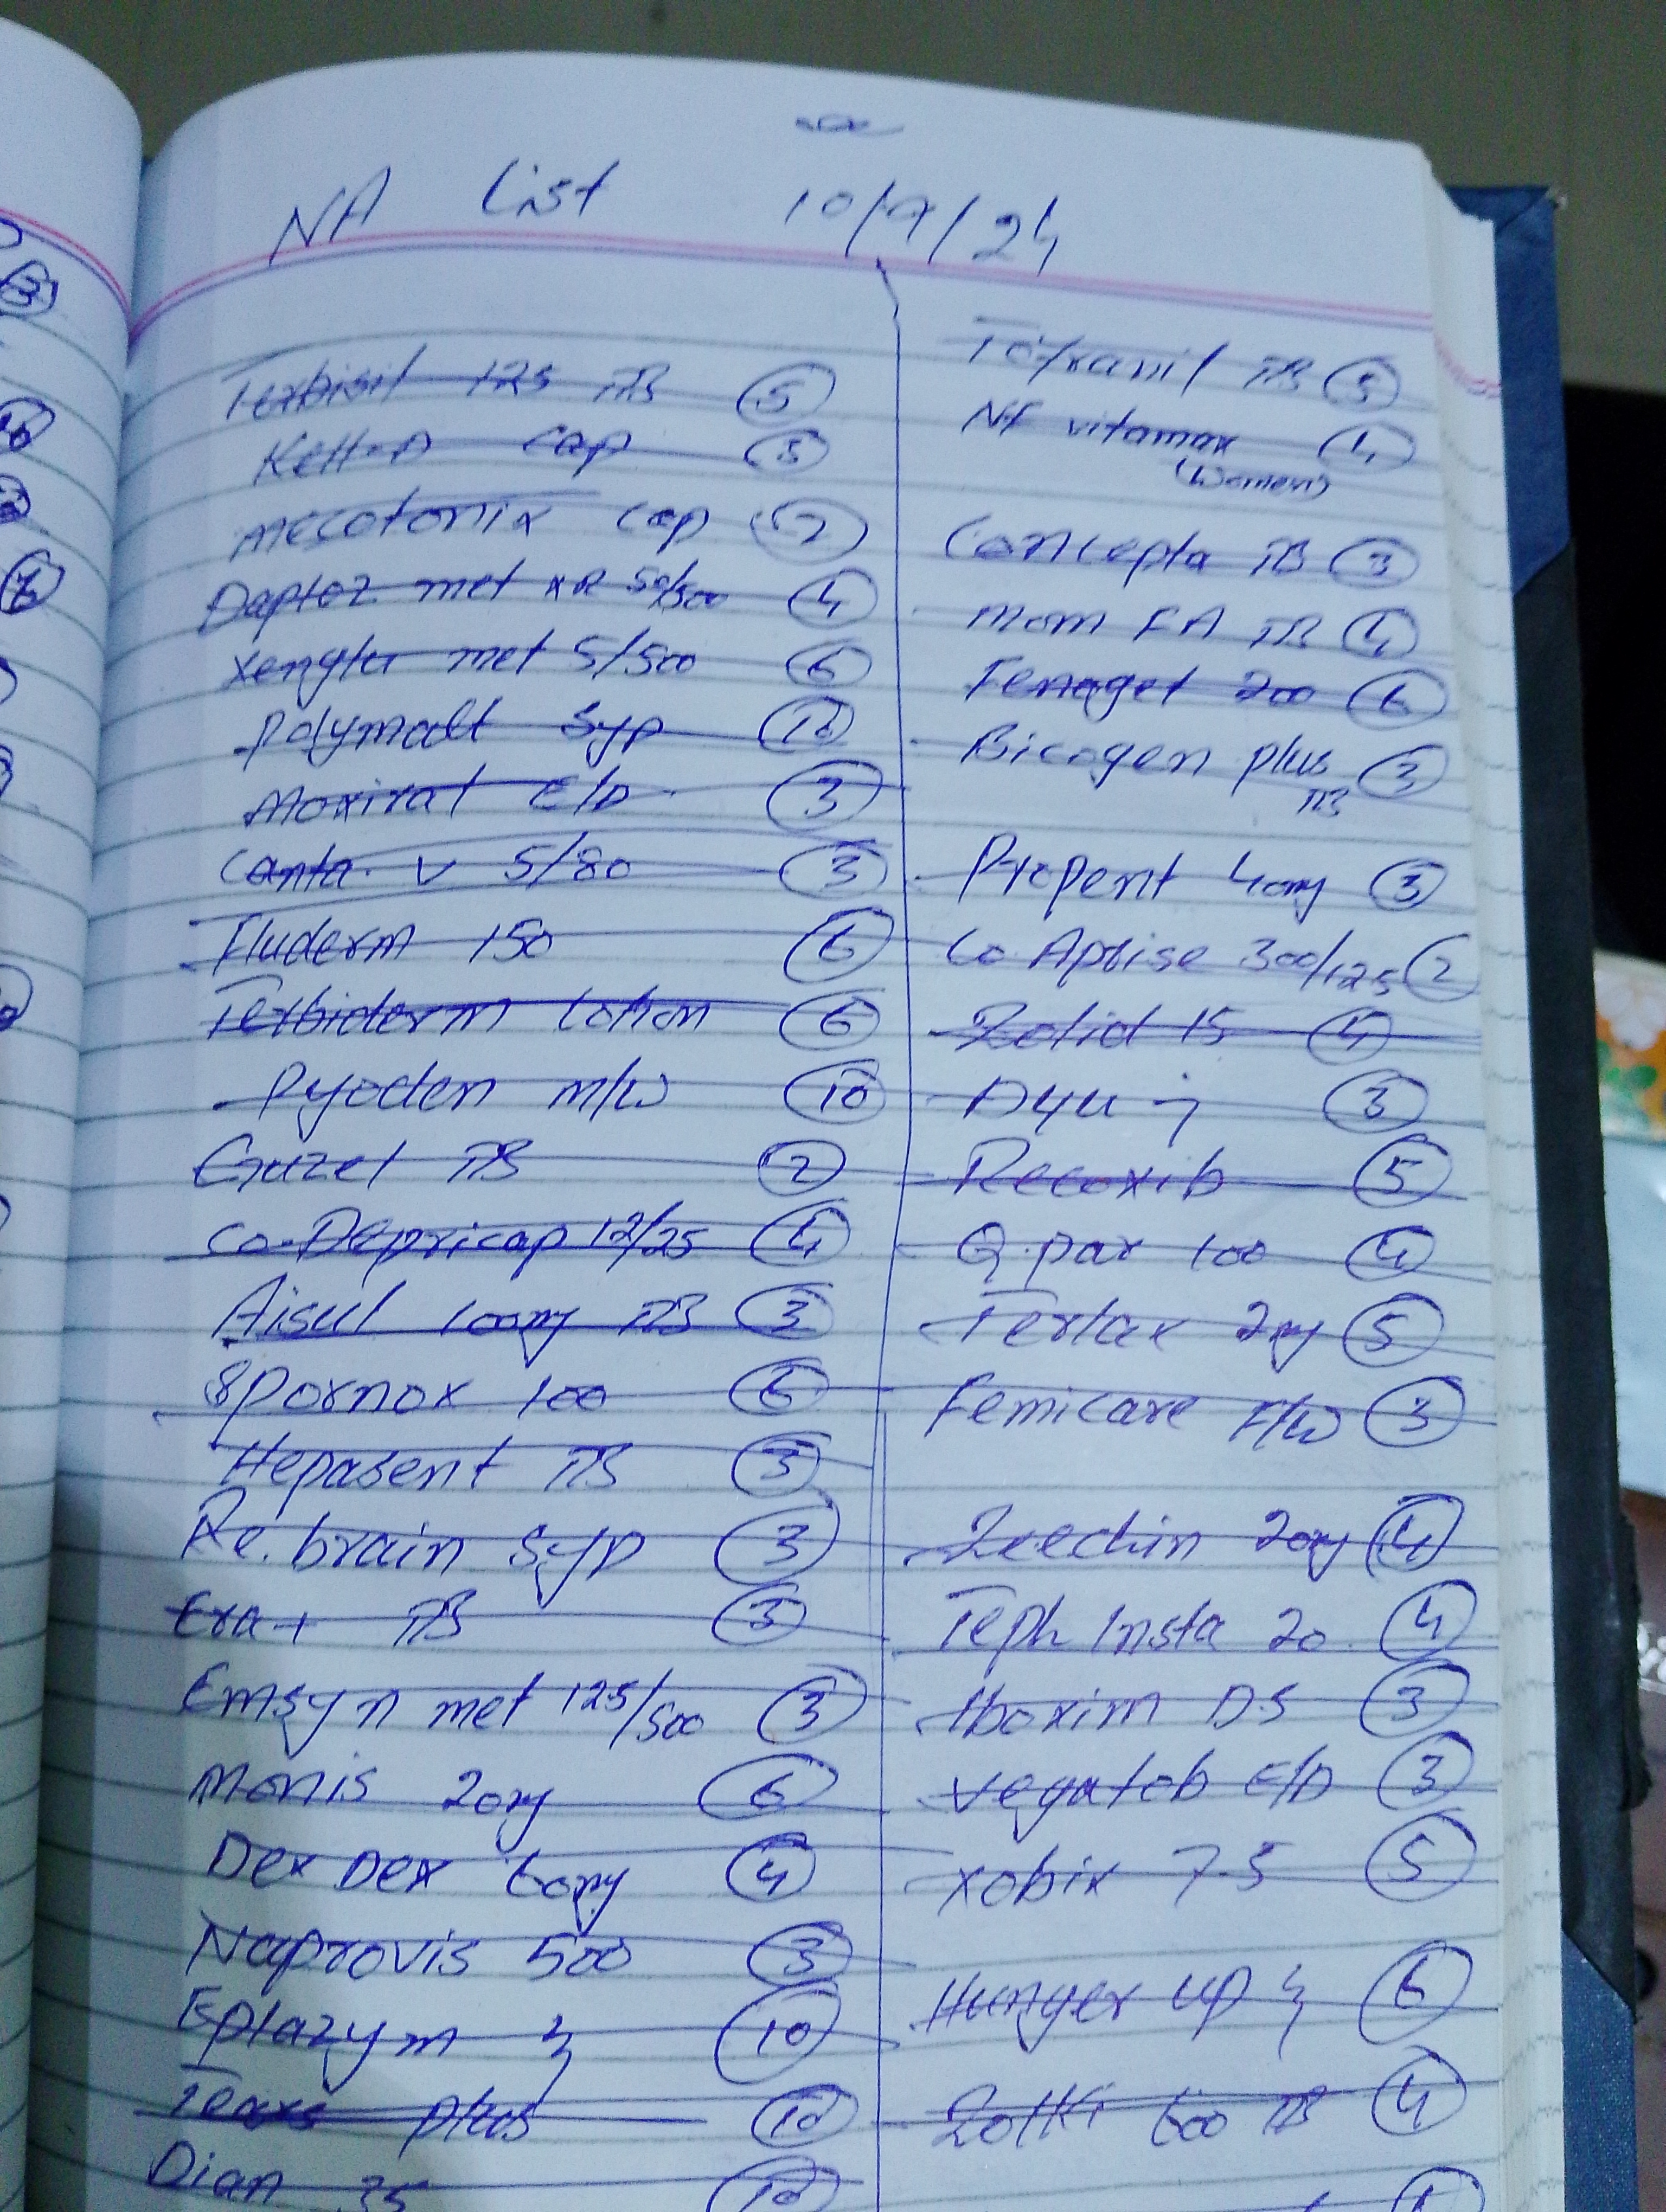 NA List 10/9/24
Terbisil 125 TB 5
Kett-A cap 3
Mecotonix cap 2
Daptoz met XR 5/500 4
Xenglu met 5/500 6
Polymalt Syp 12
Moxivat E/D 3
Canta. V 5/80 3
Fluderm 150 6
Terbiderm lotion 6
Pyoden M/W 10
Gruzel TB 2
Co-Depricap 12/25 4
Aisul 100mg TB 3
Spornox 100 6
Hepasent TB 3
Re.brain Syp 3
Exa+ TB 3
Emsyn met 125/500 3
Monis 20mg 6
Dex Dex 60mg 4
Naprovis 500 3
Eplazym 10
Tears plus 12
Dian 35
Tofranil TB 5
NF vitamax 4
(Women)
Concepta TB 3
Mom FA TB 4
Fenaget 200 6
Bicogen plus 3
TB
Propent 40mg 3
Co Aprise 300/125 2
Zolid 15 4
3
Recoxib 5
Q.par 100 4
Terlax 2mg 5
Femicare F/W 3
Zeechin 20mg 4
Teph Insta 20 4
Aboxim DS 3
Vegatob E/D 3
Xobix 7.5 5
Hunger up 6
Zolki 600 TB 4